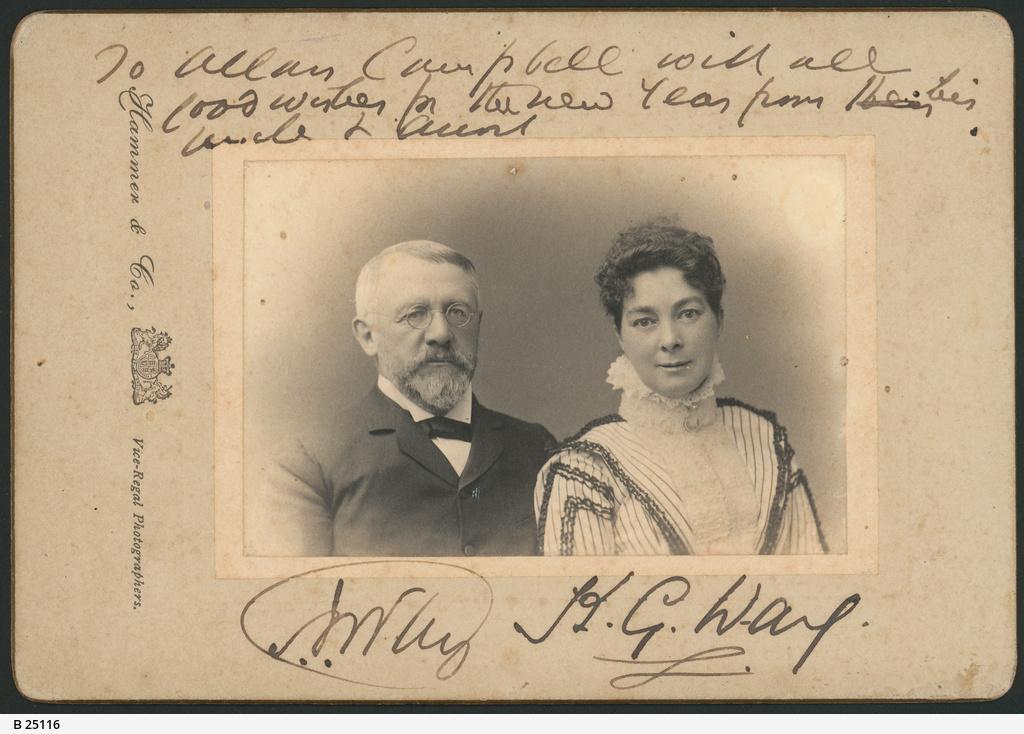 To Allan Campbell with all
good wishes for the new Year from their
uncle & Aunt.
Hammer & Co., Vice-Regal Photographers.
H. G. Way.
B 25116